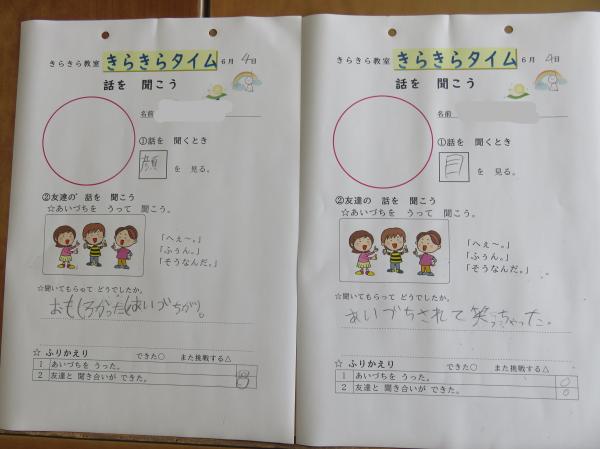 きらきら教室 きらきらタイム 6月 4日
話を 聞こう
名前
①話を 聞くとき
顔 を 見る。
②友達の 話を 聞こう
☆あいづちを うって 聞こう。
「へぇ～。」
「ふぅん。」
「そうなんだ。」
☆聞いてもらって どうでしたか。
おもしろかった(あいづちが)。
☆ ふりかえり できた○ また挑戦する△
1 あいづちを うった。
2 友達と 聞き合いが できた。
きらきら教室 きらきらタイム 6月 4日
話を 聞こう
名前
①話を 聞くとき
目 を 見る。
②友達の 話を 聞こう
☆あいづちを うって 聞こう。
「へぇ～。」
「ふぅん。」
「そうなんだ。」
☆聞いてもらって どうでしたか。
あいづちされて笑っちゃった。
☆ ふりかえり できた○ また挑戦する△
1 あいづちを うった。 ○
2 友達と 聞き合いが できた。 ○